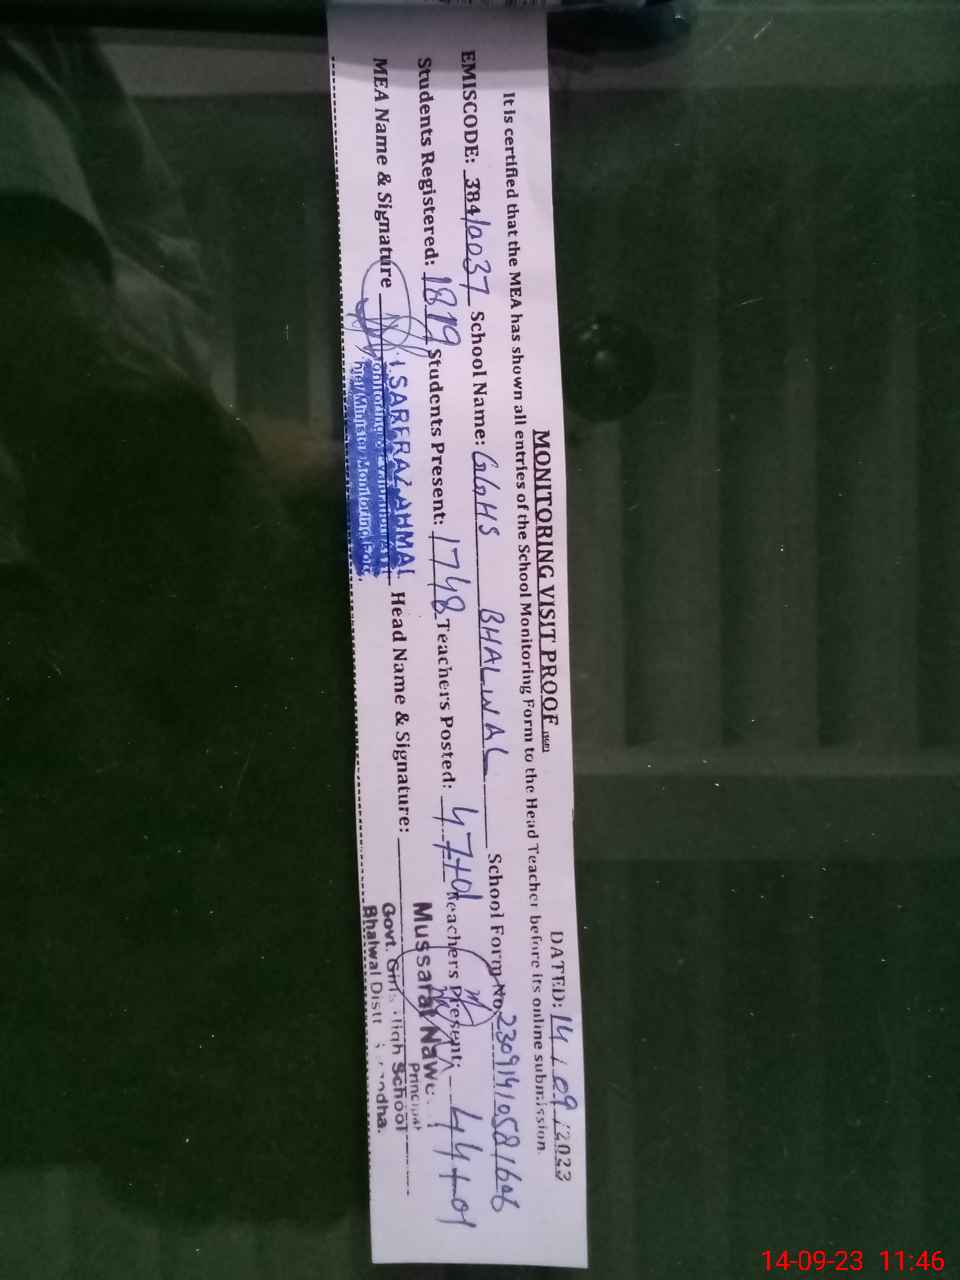 MONITORING VISIT PROOF
DATED: 14/09/2023
It is certified that the MEA has shown all entries of the School Monitoring Form to the Head Teacher before its online submission.
EMISCODE: 38410037 School Name: GGHS BHALWAL School Form No.
Students Registered: 1819 Students Present: 1748 Teachers Posted: 47+01 Teachers Present: 44+01
MEA Name & Signature SARFRAZ AHMA Head Name & Signature:
Mussarat
Principal
Govt. Girls High School
Bhalwal Distt
14-09-23 11:46